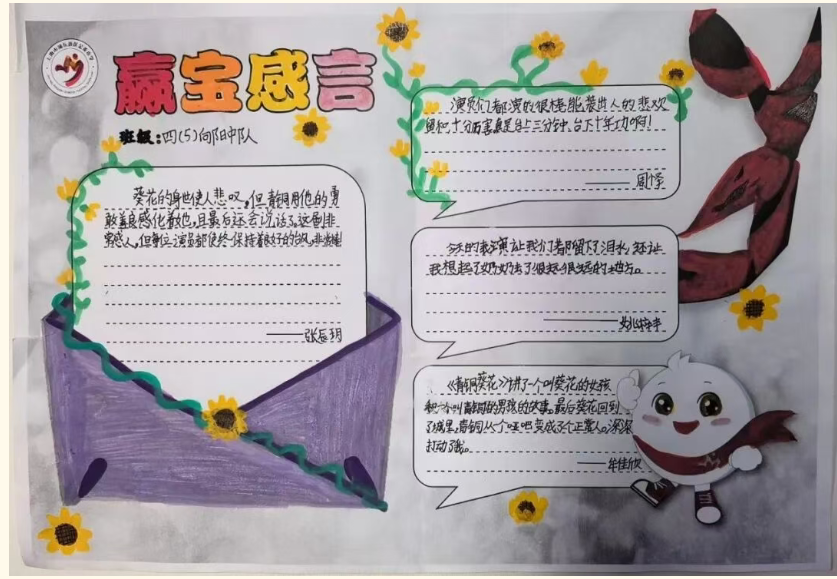 赢宝感言
班级:四(5)向阳中队
葵花的身世使人悲叹,但青铜用他的勇
敢善良感化着她,且最后还会说话了。这剧非
常感人,但每位演员都使终保持着良好的台风,非
——张辰玥
演员们都演的很棒,能装出人的悲欢
十分厉害真是台上三分钟,台下十年功啊!
——周
今天的表演让我们都留下了泪水,还让
我想起了奶奶去了很远很远的地方。
——姚
《青铜葵花》讲了一个叫葵花的女孩
和一个叫青铜的男孩的故事。最后葵花回到
了城里,青铜从一个哑吧变成了个正常人。深深
打动了我。
——牟佳欣